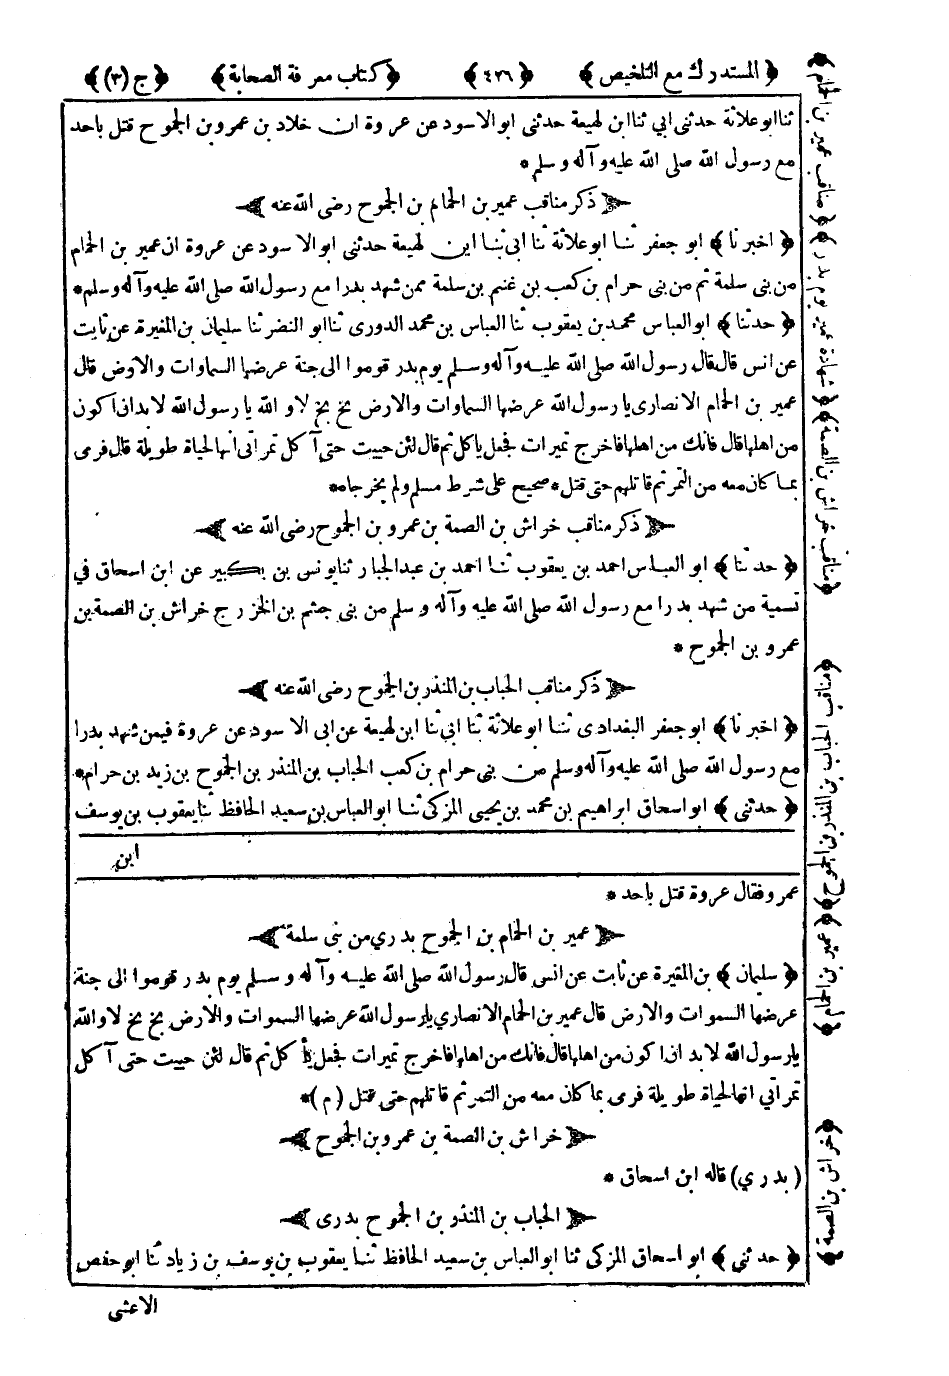 ﴿ المستدرك مع التلخيص ﴾ ﴿ ٤٢٦ ﴾ ﴿ كتاب معرفة الصحابة ﴾ ﴿ ج (٣) ﴾
ثنا ابو علاثة حدثنى ابي ثنا ابن لهيعة حدثنى ابو الاسود عن عروة ان خلاد بن عمرو بن الجموح قتل باحد
مع رسول الله صلى الله عليه وآله وسلم *
ذكر مناقب عمير بن الحمام بن الجموح رضى الله عنه
﴿ اخبرنا ﴾ ابو جعفر ثنا ابو علاثة ثنا ابى ثنا ابن لهيعة حدثنى ابو الاسود عن عروة ان عمير بن الحمام
من بنى سلمة ثم من بنى حرام بن كعب بن غنم بن سلمة ممن شهد بدرا مع رسول الله صلى الله عليه وآله وسلم *
﴿ حدثنا ﴾ ابو العباس محمد بن يعقوب ثنا العباس بن محمد الدورى ثنا ابو النضر ثنا سليمان بن المغيرة عن ثابت
عن انس قال قال رسول الله صلى الله عليه وآله وسلم يوم بدر قوموا الى جنة عرضها السماوات والارض قال
عمير بن الحمام الانصارى يا رسول الله عرضها السماوات والارض بخ بخ لا و الله يا رسول الله لا بد ان اكون
من اهلها قال فانك من اهلها فاخرج تميرات فجعل ياكل ثم قال لئن حييت حتى آكل تمراتى انها لحياة طويلة قال فرمى
بما كان معه من التمر ثم قاتلهم حتى قتل * صحيح على شرط مسلم ولم يخرجاه *
ذكر مناقب خراش بن الصمة بن عمرو بن الجموح رضى الله عنه
﴿ حدثنا ﴾ ابو العباس احمد بن يعقوب ثنا احمد بن عبد الجبار ثنا يونس بن بكير عن ابن اسحاق في
تسمية من شهد بدرا مع رسول الله صلى الله عليه وآله وسلم من بنى جثم بن الخزرج خراش بن الصمة بن
عمرو بن الجموح *
ذكر مناقب الحباب بن المنذر بن الجموح رضى الله عنه
﴿ اخبرنا ﴾ ابو جعفر البغدادى ثنا ابو علاثة ثنا ابى ثنا ابن لهيعة عن ابى الاسود عن عروة فيمن شهد بدرا
مع رسول الله صلى الله عليه وآله وسلم من بنى حرام بن كعب الحباب بن المنذر بن الجموح بن زيد بن حرام *
﴿ حدثنى ﴾ ابو اسحاق ابراهيم بن محمد بن يحيى المزكى ثنا ابو العباس بن سعيد الحافظ ثنا يعقوب بن يوسف
ابن
عمرو فقال عروة قتل باحد *
عمير بن الحمام بن الجموح بدري من بنى سلمة
﴿ سليمان ﴾ بن المغيرة عن ثابت عن انس قال رسول الله صلى الله عليه وآله وسلم يوم بدر قوموا الى جنة
عرضها السموات والارض قال عمير بن الحمام الانصاري يا رسول الله عرضها السموات والارض بخ بخ لا والله
يا رسول الله لا بد ان اكون من اهلها قال فانك من اهلها فاخرج تميرات فجعل يأكل ثم قال لئن حييت حتى آكل
تمراتي انها لحياة طويلة فرمى بما كان معه من التمر ثم قاتلهم حتى قتل (م) *
خراش بن الصمة بن عمرو بن الجموح
(بدري) قاله ابن اسحاق *
الحباب بن المنذر بن الجموح بدرى
﴿ حدثني ﴾ ابو اسحاق المزكى ثنا ابو العباس بن سعيد الحافظ ثنا يعقوب بن يوسف بن زياد ثنا ابو حفص
الاعشى
﴿ مناقب عمير بن الحمام ﴾
﴿ شهادة عمير يوم بدر ﴾
﴿ مناقب خراش بن الصمة ﴾
﴿ مناقب الحباب بن المنذر بن الجموح ﴾
﴿ عمير بن الحمام ﴾
﴿ خراش بن الصمة ﴾